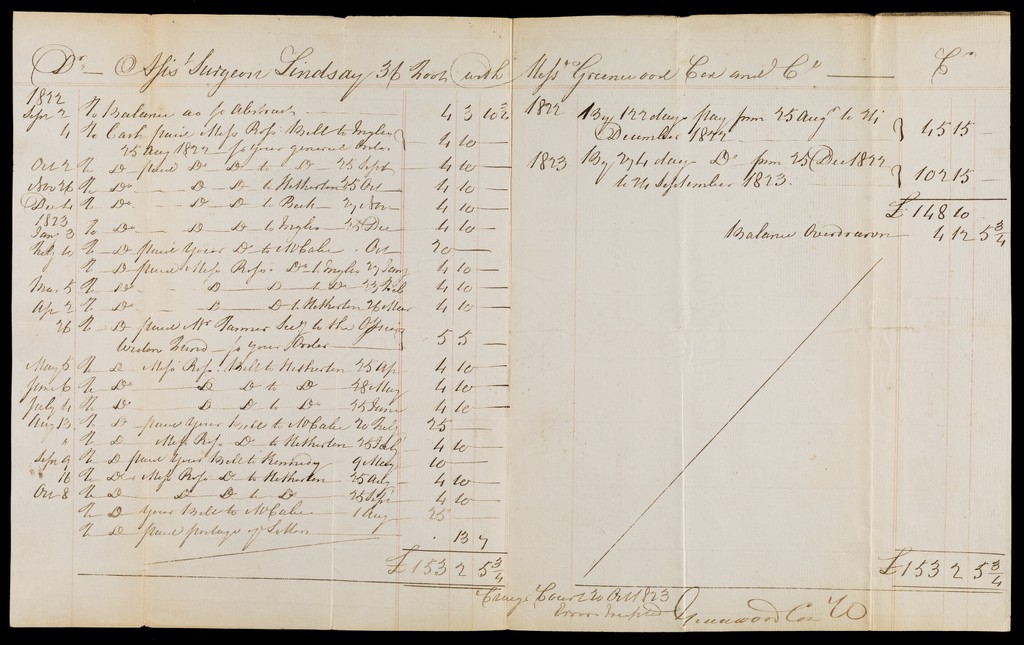 Dr — Assist Surgeon Lindsay 36 Foot with Messrs Greenwood Cox and Co — Cr
1822
Sepr 2 To Balance as pr Abstract 4 3 10 3/4
4 To Cash paid Messrs Ross' Bill to Inglis
25 Aug 1822 — pr your general Order 4 10 —
Oct 2 To Do paid Do Do to Do 25 Sept 4 10 —
Nov 26 To Do — Do Do to Netherton 25 Oct 4 10 —
Dec 4 To Do — Do Do to Beck 27 Nov 4 10 —
1823
Jany 3 To Do — Do Do to Inglis 25 Dec 4 10 —
Feby 4 To Do paid your Do to McCabe Oct 20 —
To Do paid Messrs Ross' Do to Inglis 27 Jany 4 10 —
Mar 5 To Do Do Do to Do 25 Feb 4 10 —
Apr 2 To Do — Do Do to Netherton 26 Mar 4 10 —
26 To Do paid Mr Farmer Secy to the Officers
Widow Fund — pr your Order 5 5 —
May 5 To Do Messrs Ross' Bill to Netherton 25 Apr 4 10 —
June 6 To Do Do Do to Do 28 May 4 10 —
July 4 To Do Do Do to Do 25 June 4 10 —
Aug 13 To Do paid your Bill to McCabe 20 July 25 —
" To Do Messrs Ross' Do to Netherton 25 July 4 10 —
Sepr 9 To Do paid your Bill to Kennedy 9 May 10 —
16 To Do Messrs Ross' Do to Netherton 25 Aug 4 10 —
Oct 8 To Do Do Do to Do 25 Sepr 4 10 —
To Do your Bill to McCabe 1 Aug 25 —
To Do paid postage of Letters . 13 7
£153 2 5 3/4
1822 By 122 days pay from 25 Augt to 24
December 1822 45 15 —
1823 By 274 days Do from 25 Dec 1822
to 24 September 1823. 102 15 —
£148 10 —
Balance Overdrawn 4 12 5 3/4
£153 2 5 3/4
Craigs Court 20 Oct 1823
Errors Excepted Greenwood Cox & Co